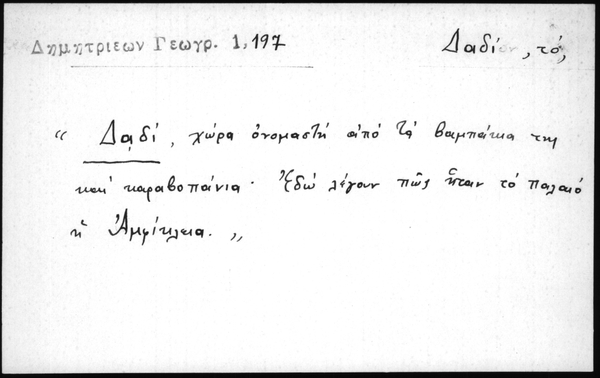 Δημητριεων Γεωγρ. 1, 197
Δαδίον, τό,
“ Δαδί, χώρα ὀνομαστή ἀπό τά βαμπάκια της
καί καραβοπάνια. Ἐδώ λέγουν πῶς ἦταν τό παλαιό
ἡ Ἀμφίκλεια. „